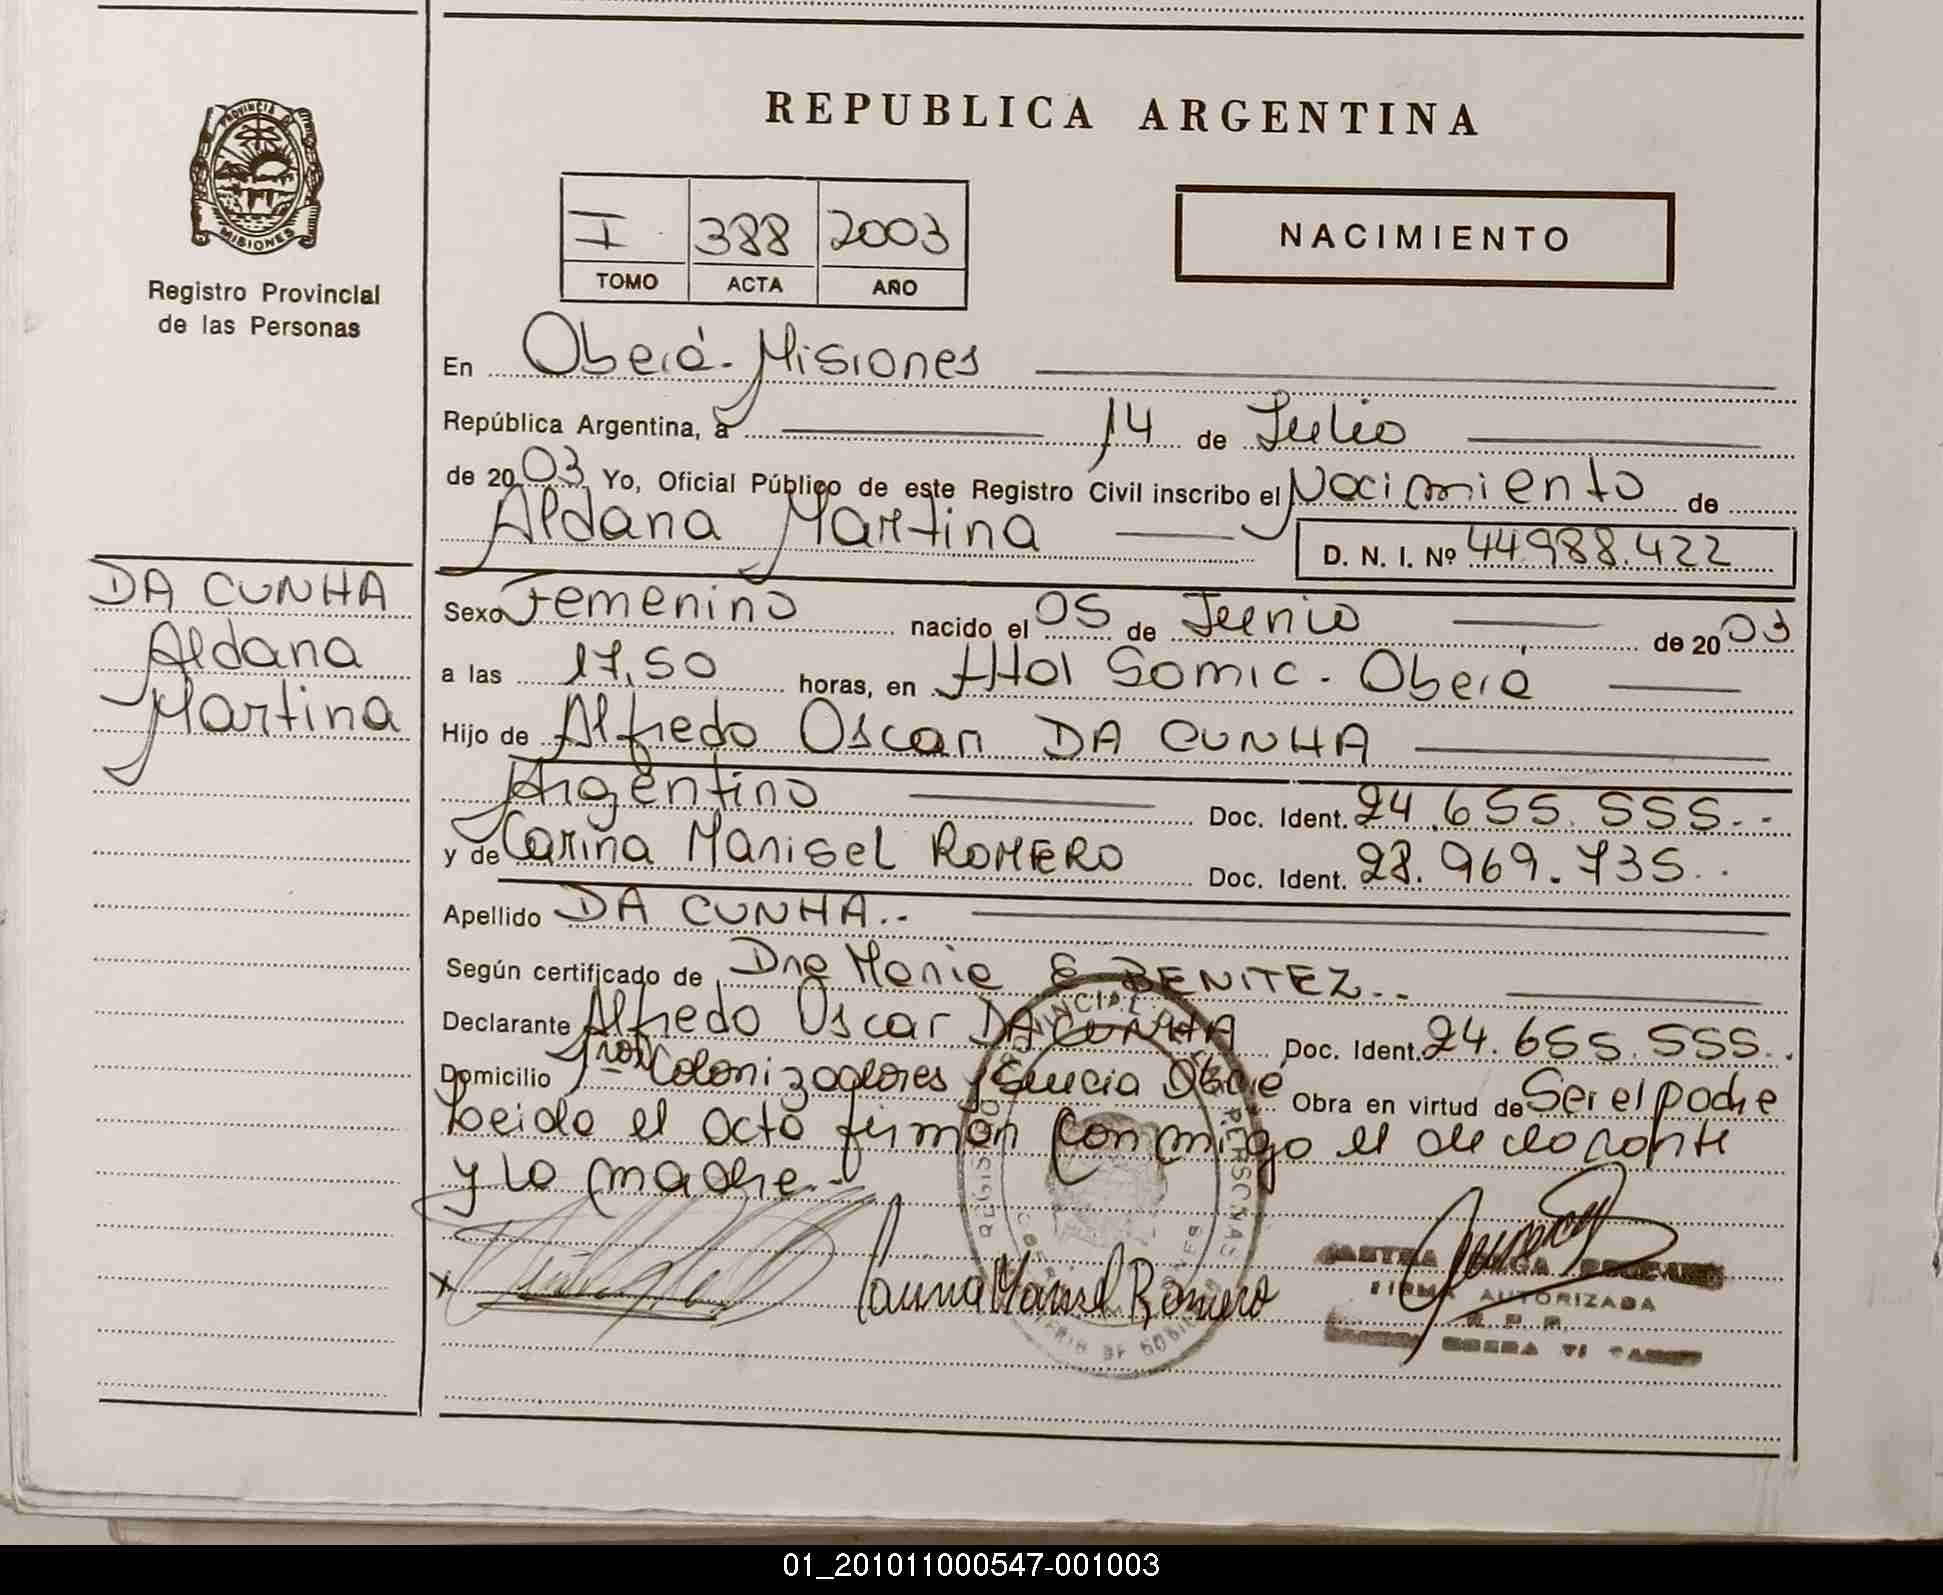 PROVINCIA DE
MISIONES
Registro Provincial
de las Personas
REPUBLICA ARGENTINA
I 388 2003
TOMO ACTA AÑO
NACIMIENTO
En Oberá - Misiones
República Argentina, a 14 de Julio
de 2003 Yo, Oficial Público de este Registro Civil inscribo el Nacimiento de
Aldana Martina D. N. I. Nº 44.988.422
DA CUNHA
Aldana
Martina
Sexo Femenino nacido el 05 de Junio de 2003
a las 17,50 horas, en Htal Samic - Oberá
Hijo de Alfredo Oscar DA CUNHA
Argentino Doc. Ident. 24.655.555.-
y de Carina Marisel ROMERO Doc. Ident. 28.969.735.-
Apellido DA CUNHA.-
Según certificado de Dra Maria E BENITEZ.-
Declarante Alfredo Oscar DA CUNHA Doc. Ident. 24.655.555.
Domicilio Colonizadores y Suecia Oberá Obra en virtud de Ser el padre
Leida el acta firman conmigo el declarante
y la madre.-
Carina Marisel Romero
FIRMA AUTORIZADA
R. P. P.
01_201011000547-001003